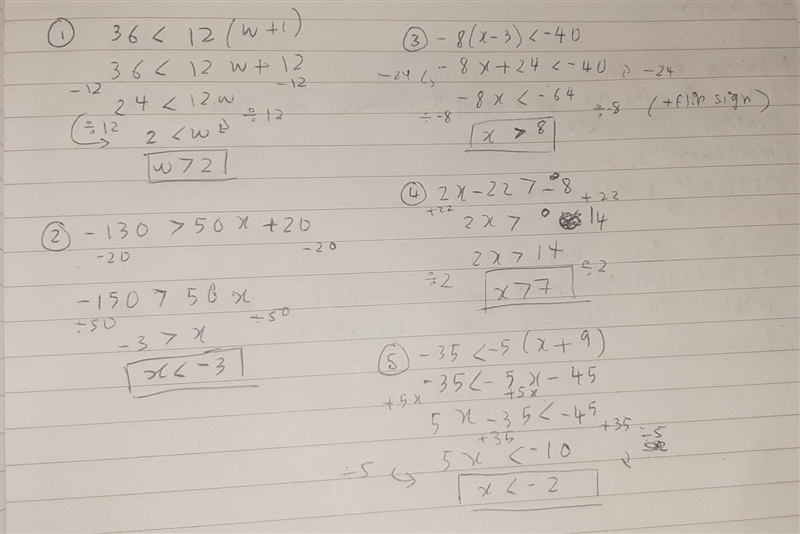 ① 36 < 12 (w+1)
36 < 12 w + 12
-12 -12
24 < 12w
÷12 ÷12
2 < w
w > 2
② -130 > 50 x + 20
-20 -20
-150 > 50 x
÷50 ÷50
-3 > x
x < -3
③ -8(x-3) < -40
-24 -8x + 24 < -40 -24
-8x < -64
÷-8 ÷-8 (+flip sign)
x > 8
④ 2x - 22 > -8
+22 +22
2x > 14
2x > 14
÷2 ÷2
x > 7
⑤ -35 < -5 (x + 9)
-35 < -5x - 45
+5x +5x
5x - 35 < -45
+35 +35
5x < -10
÷5 ÷5
x < -2